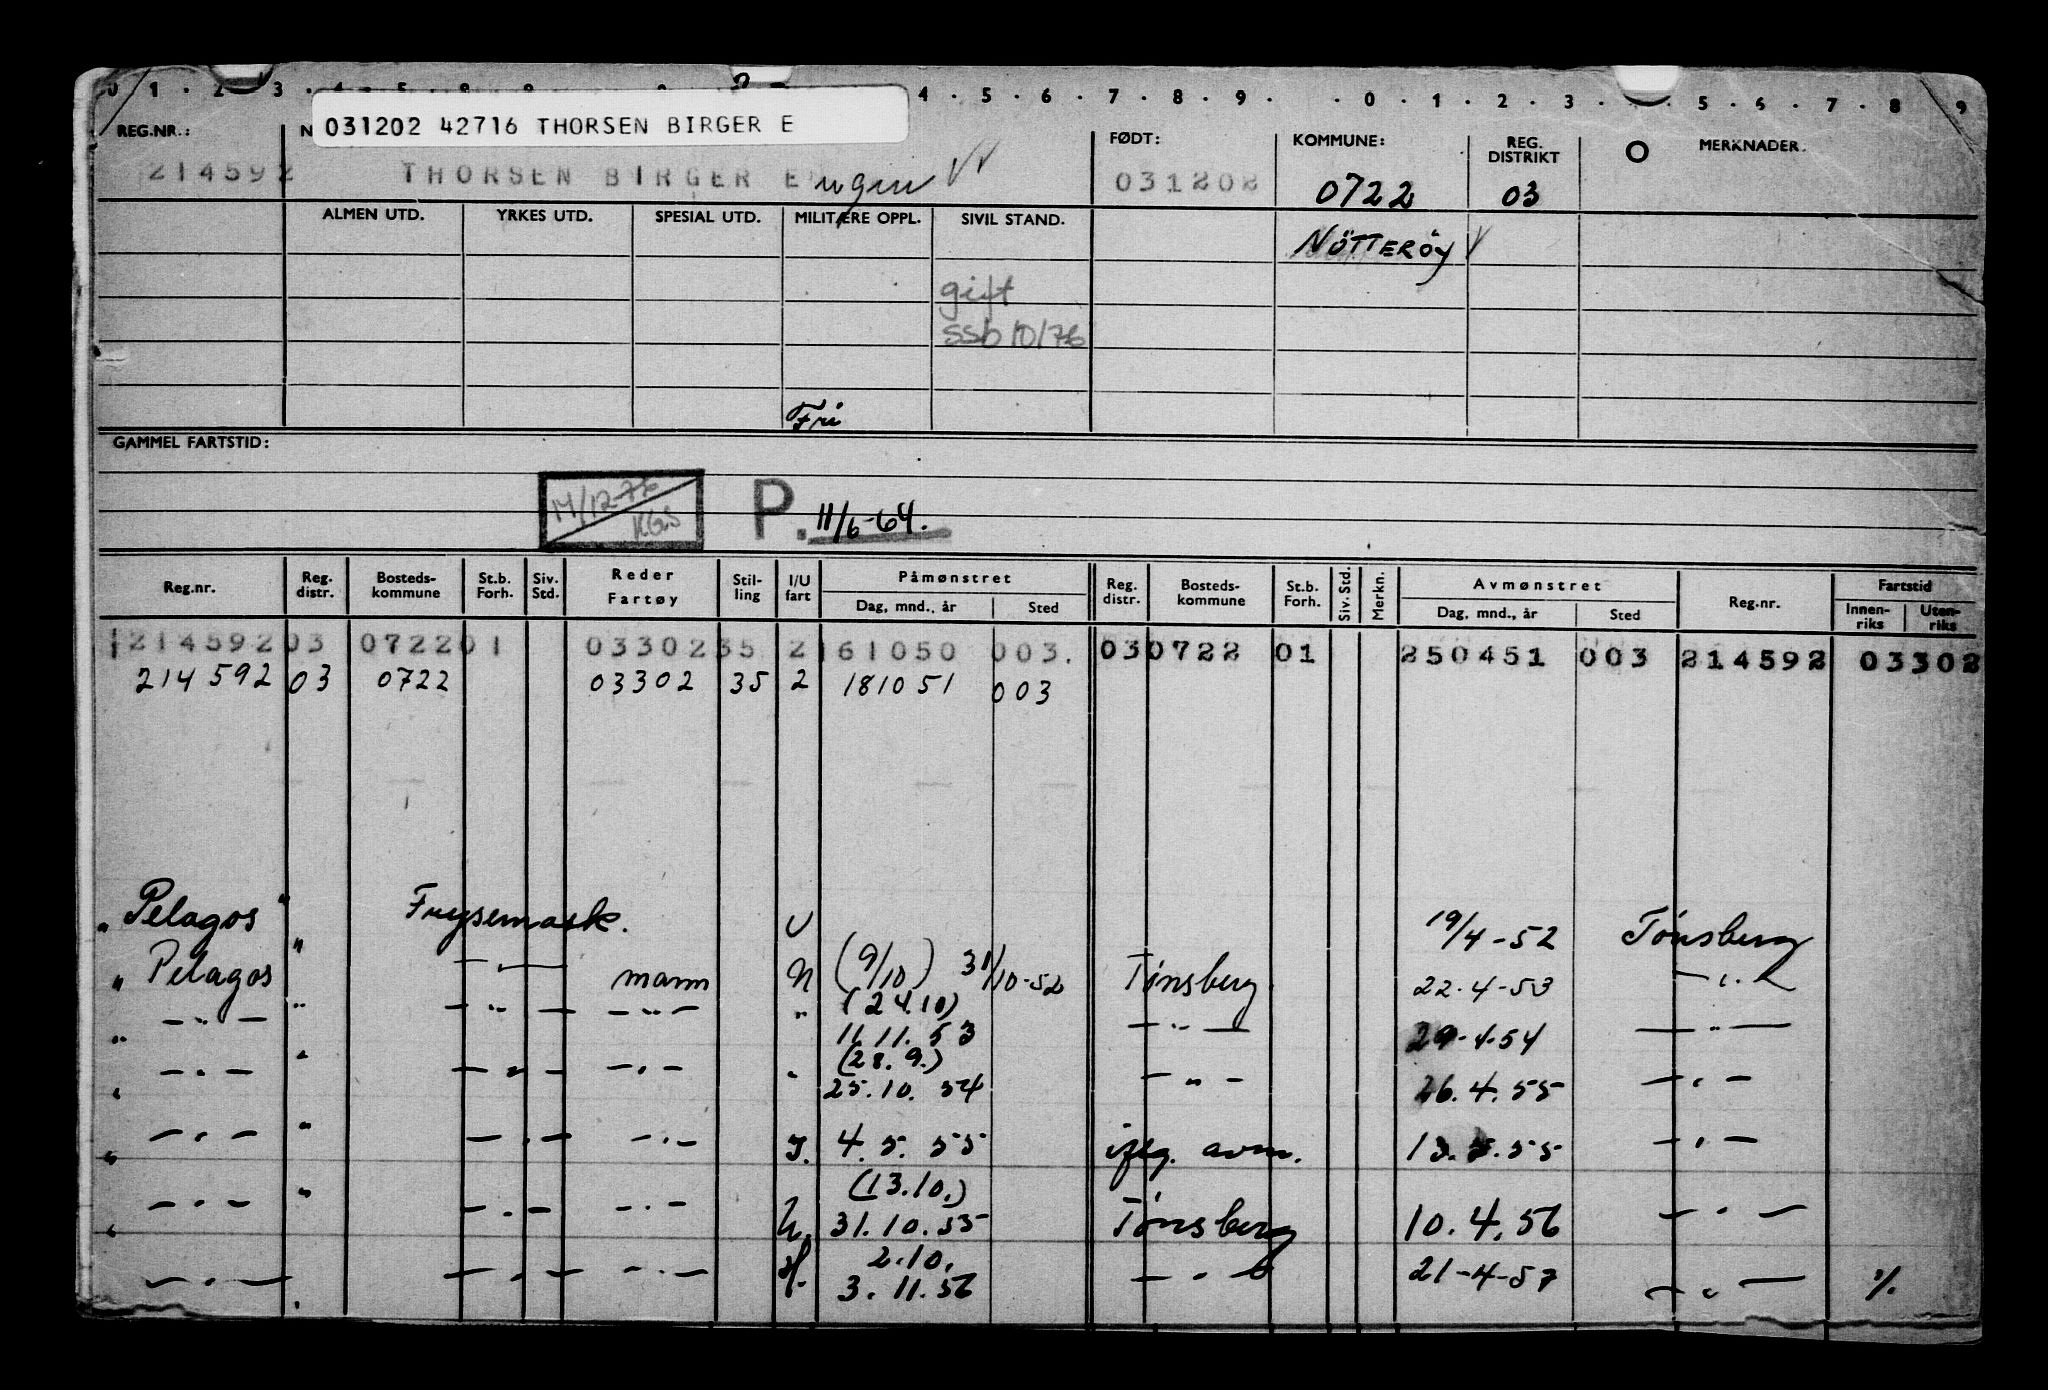 0 1 . 2 3 4 . 5 . 4 . 5 . 6 . 7 . 8 . 9 . . 0 . 1 . 2 . 3 . 5 . 6 . 7 . 8 9
031202 42716 THORSEN BIRGER E
REG.NR.: N FØDT: KOMMUNE: REG. DISTRIKT O MERKNADER.
214592 THORSEN BIRGER Eugen 031202 0722 03
ALMEN UTD. YRKES UTD. SPESIAL UTD. MILITÆRE OPPL. SIVIL STAND. NÖTTERÖY
gift
ssb 10/76
Fri
GAMMEL FARTSTID:
14/12-76 KGS P. 11/6-64.
Reg.nr. Reg. distr. Bosteds-kommune St.b. Forh. Siv. Std. Reder Fartøy Stil-ling I/U fart Påmønstret Reg. distr. Bosteds-kommune St.b. Forh. Siv. Std. Merkn. Avmønstret Reg.nr. Fartstid
Dag, mnd., år Sted Dag, mnd., år Sted Innen-riks Uten-riks
214592 03 0722 01 03302 35 2 161050 003. 03 0722 01 250451 003 214592 03302
214592 03 0722 03302 35 2 181051 003
"Pelagos" Frysemask. U 19/4-52 Tönsberg
"Pelagos" — " — mann U (9/10) 31/10-52 Tönsberg 22.4-53 — " —
" — " — " — " — — " — " (24.10) 11.11.53 — " — 29.4.54 — " —
" — " — " — " — — " — " (28.9.) 25.10.54 — " — 26.4.55 — " —
" — " — " — " — — " — I. 4.5.55 iflg. avm. 13.5.55 — " —
" — " — " — " — — " — U. (13.10.) 31.10.55 Tönsberg 10.4.56 — " —
" — " — " — " — — " — 2.10. 3.11.56 — " — 21-4-57 — " — %.